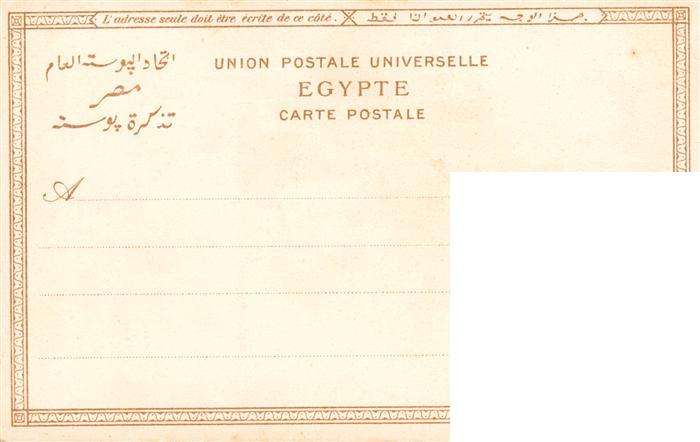 L'adresse seule doit être écrite de ce côté.
هذا الوجه يتقرر العنوان فقط
اتحاد البوسته العام
مصر
تذكرة بوسته
UNION POSTALE UNIVERSELLE
EGYPTE
CARTE POSTALE
A